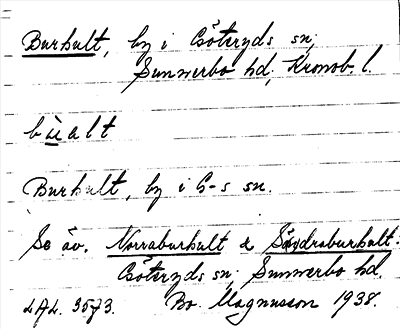 Burhult, by i Göteryds sn,
Sunnerbo hd, Kronob. l.
bùalt
Burhult, by i G-s sn.
Se äv. Norraburhult & Södraburhult.
Göteryds sn, Sunnerbo hd.
LAL. 3573. Bo Magnusson 1938.